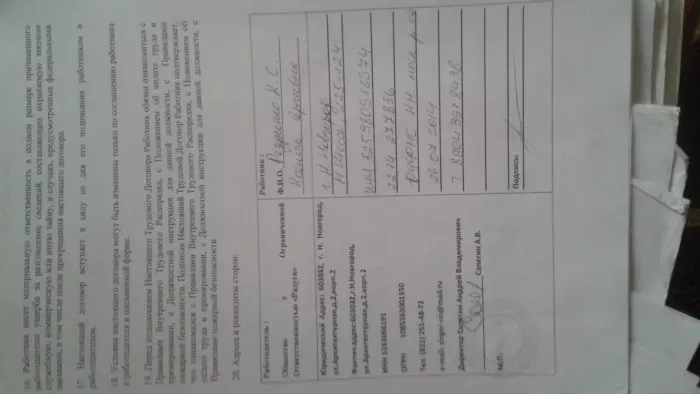 16. Работник несет материальную ответственность в полном размере причиненного
работодателю ущерба за разглашение сведений, составляющих охраняемую законом
служебную, коммерческую или иную тайну, в случаях, предусмотренных федеральными
законами, в том числе после прекращения настоящего договора.
17. Настоящий договор вступает в силу со дня его подписания работником и
работодателем.
18. Условия настоящего договора могут быть изменены только по соглашению работника
и работодателя в письменной форме.
19. Перед подписанием Настоящего Трудового Договора Работник обязан ознакомиться с
Правилами Внутреннего Трудового Распорядка, с Положением об оплате труда и
премировании, с Должностной инструкции для данной должности, с Правилами
пожарной безопасности. Подписав Настоящий Трудовой Договор Работник подтверждает,
что ознакомился с Правилами Внутреннего Трудового Распорядка, с Положением об
оплате труда и премировании, с Должностной инструкции для данной должности, с
Правилами пожарной безопасности
20. Адреса и реквизиты сторон:
Работодатель :
Общество с Ограниченной
Ответственностью «Радуга»
Юридический Адрес: 603032, г. Н. Новгород,
ул.Архитектурная,д.2,корп.2
Фактич.адрес:603032,г.Н.Новгород,
ул.Архитектурная,д.2,корп.2
ИНН 5263066191
ОГРН 1085263001350
Тел. (831) 251-48-72
e-mail: zinger-nn@mail.ru
Директор Сапегин Андрей Владимирович
Сапегин А.В.
М.П.
Работник :
Ф.И.О. К. С.
г. Н. Новгород
Н
ИНН
22 14 277836
26.07.2014
Подпись: